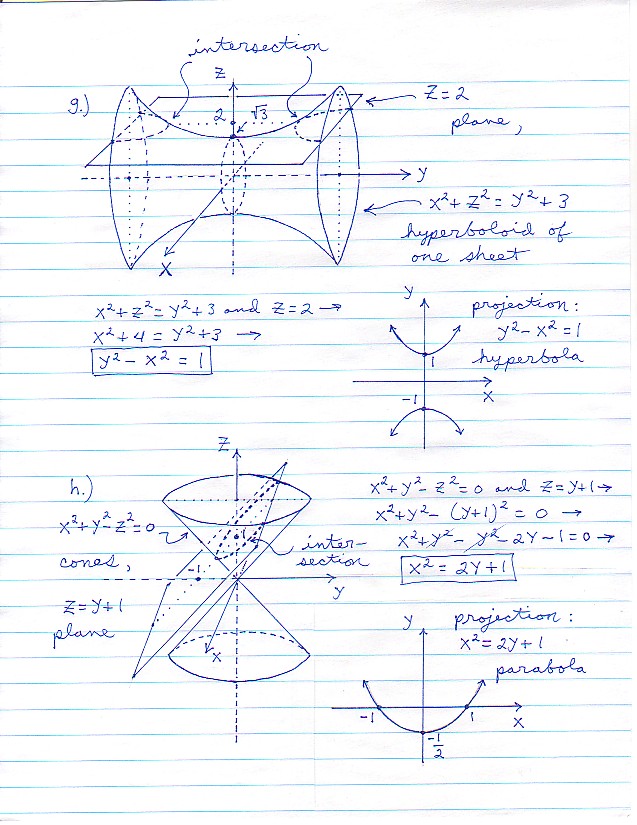 intersection
g.)
z
2
√3
z = 2
plane,
y
x
x² + z² = y² + 3
hyperboloid of
one sheet
x² + z² = y² + 3 and z = 2 →
x² + 4 = y² + 3 →
y² - x² = 1
y
1
-1
x
projection:
y² - x² = 1
hyperbola
h.)
z
x² + y² - z² = 0
cones,
z = y + 1
plane
1
-1
inter-
section
y
x
x² + y² - z² = 0 and z = y + 1 →
x² + y² - (y+1)² = 0 →
x² + y² - y² - 2y - 1 = 0 →
x² = 2y + 1
y
projection:
x² = 2y + 1
parabola
-1
1
x
-1/2